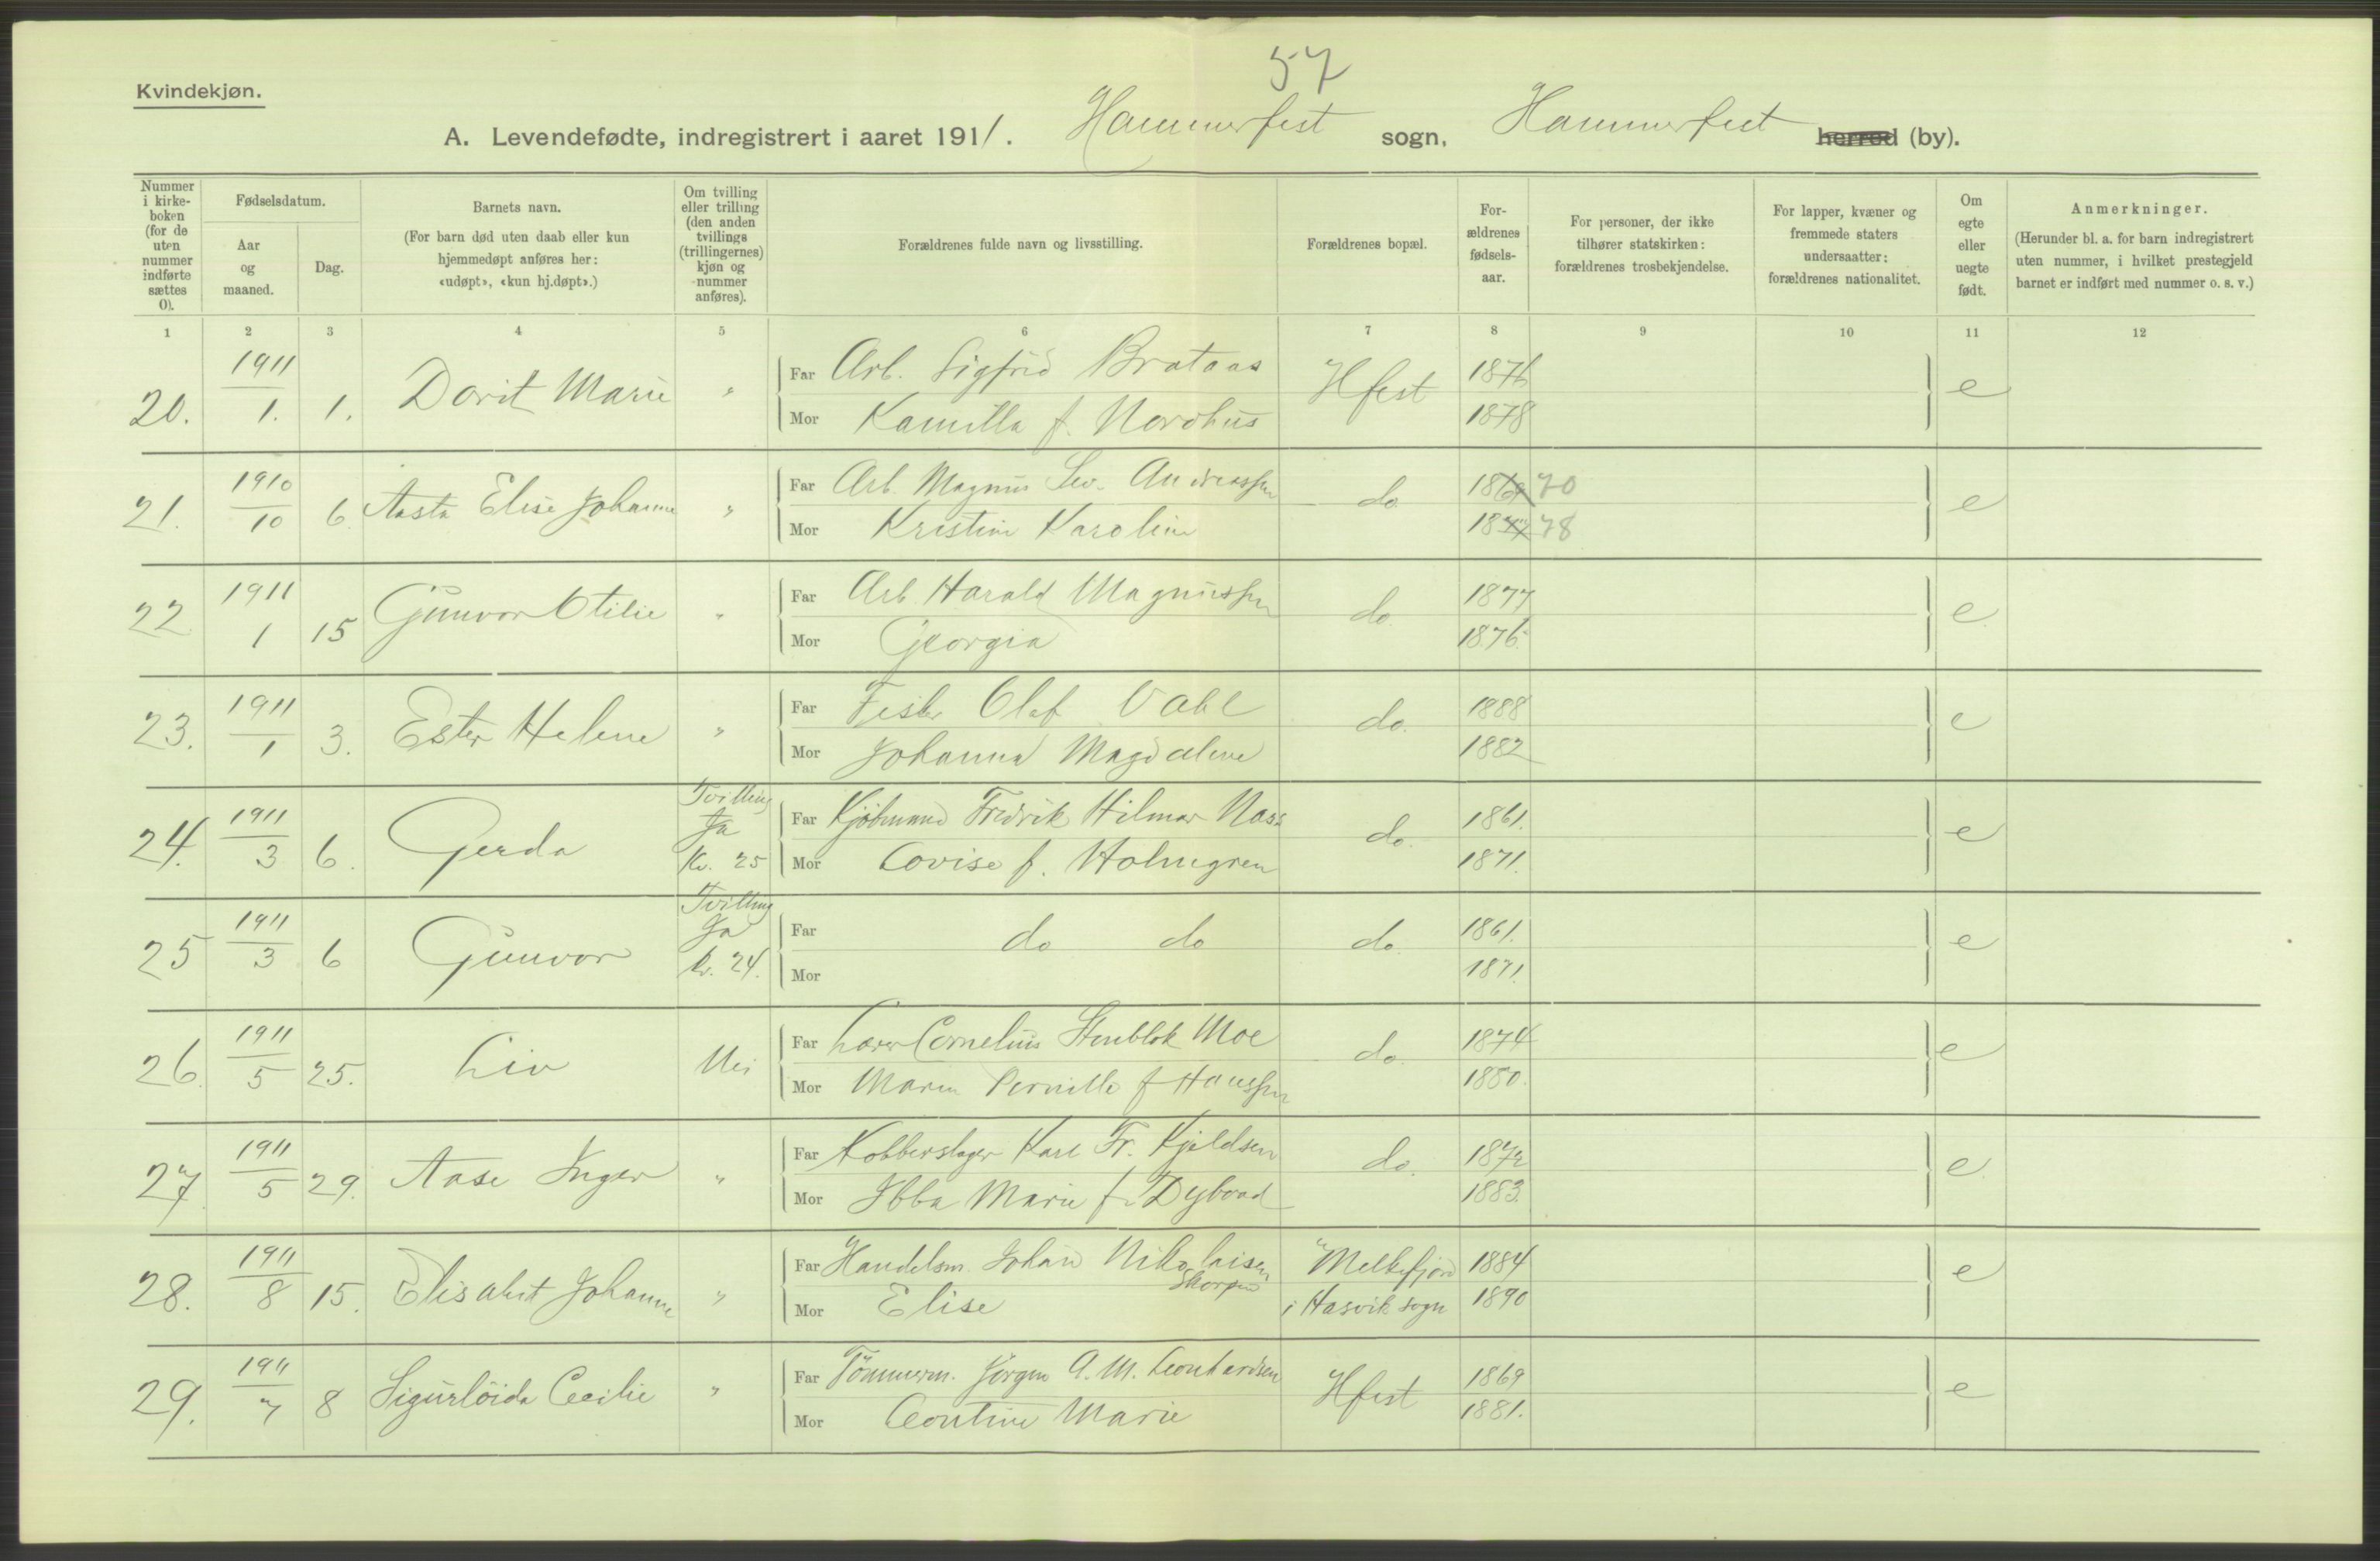 57
Kvindekjøn.
A. Levendefødte, indregistrert i aaret 1911. Hammerfest sogn, Hammerfest herred (by).
Nummer i kirkeboken (for de uten nummer indførte sættes 0).
Fødselsdatum.
Aar og maaned.
Dag.
Barnets navn.
(For barn død uten daab eller kun hjemmedøpt anføres her: «udøpt», «kun hj.døpt».)
Om tvilling eller trilling (den anden tvillings (trillingernes) kjøn og nummer anføres).
Forældrenes fulde navn og livsstilling.
Forældrenes bopæl.
Forældrenes fødselsaar.
For personer, der ikke tilhører statskirken: forældrenes trosbekjendelse.
For lapper, kvæner og fremmede staters undersaatter: forældrenes nationalitet.
Om egte eller uegte født.
Anmerkninger.
(Herunder bl. a. for barn indregistrert uten nummer, i hvilket prestegjeld barnet er indført med nummer o. s. v.)
1 2 3 4 5 6 7 8 9 10 11 12
20. 1911/1. 1. Dorit Marie " Far Arb. Sigfrid Brataas Hfest 1876 e
Mor Kamilla f. Nordhus 1878
21. 1910/10 6. Aasta Elise Johanne " Far Arb. Magnus Sev. Andreassen do. 1869 70 e
Mor Kristine Karoline 1877 78
22 1911 1 15 Gunvor Otilie " Far Arb. Harald Magnussen do. 1877 e.
Mor Georgia 1876.
23. 1911/1 3. Ester Helene " Far Fisker Olaf Dahl do. 1888 e
Mor Johanna Magdalene 1882
24. 1911/3 6. Gerda Tvilling Ja Kv. 25 Far Kjøbmand Fredrik Hilmar Nass do. 1861. e
Mor Lovise f. Holmgren 1871.
25 1911/3 6 Gunvor Tvilling Ja Kv. 24. Far do do do. 1861. e
Mor 1871.
26. 1911/5 25. Liv Nei Far Lærer Cornelius Stenblok Moe do. 1874 e
Mor Maren Pernille f Hanssen 1880.
27. 1911/5 29. Aase Inger " Far Kobberslager Karl Fr. Kjeldsen do. 1872 e.
Mor Ebba Marie f. Dybvad 1883.
28. 1911/8 15. Elisabet Johanne " Far Handelsm. Johan Nikolaisen Skorpen Melkefjord 1884 e
Mor Elise i Hasvik sogn 1890
29. 1911/7 8 Sigurlöida Cecilie " Far Tömmerm. Jörgen A. M. Leonhardsen Hfest 1869 e
Mor Leontine Marie 1881.